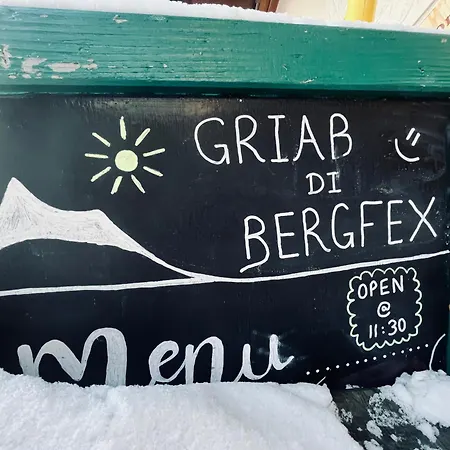 GRIAB
DI
BERGFEX
OPEN
@
11:30
Menu